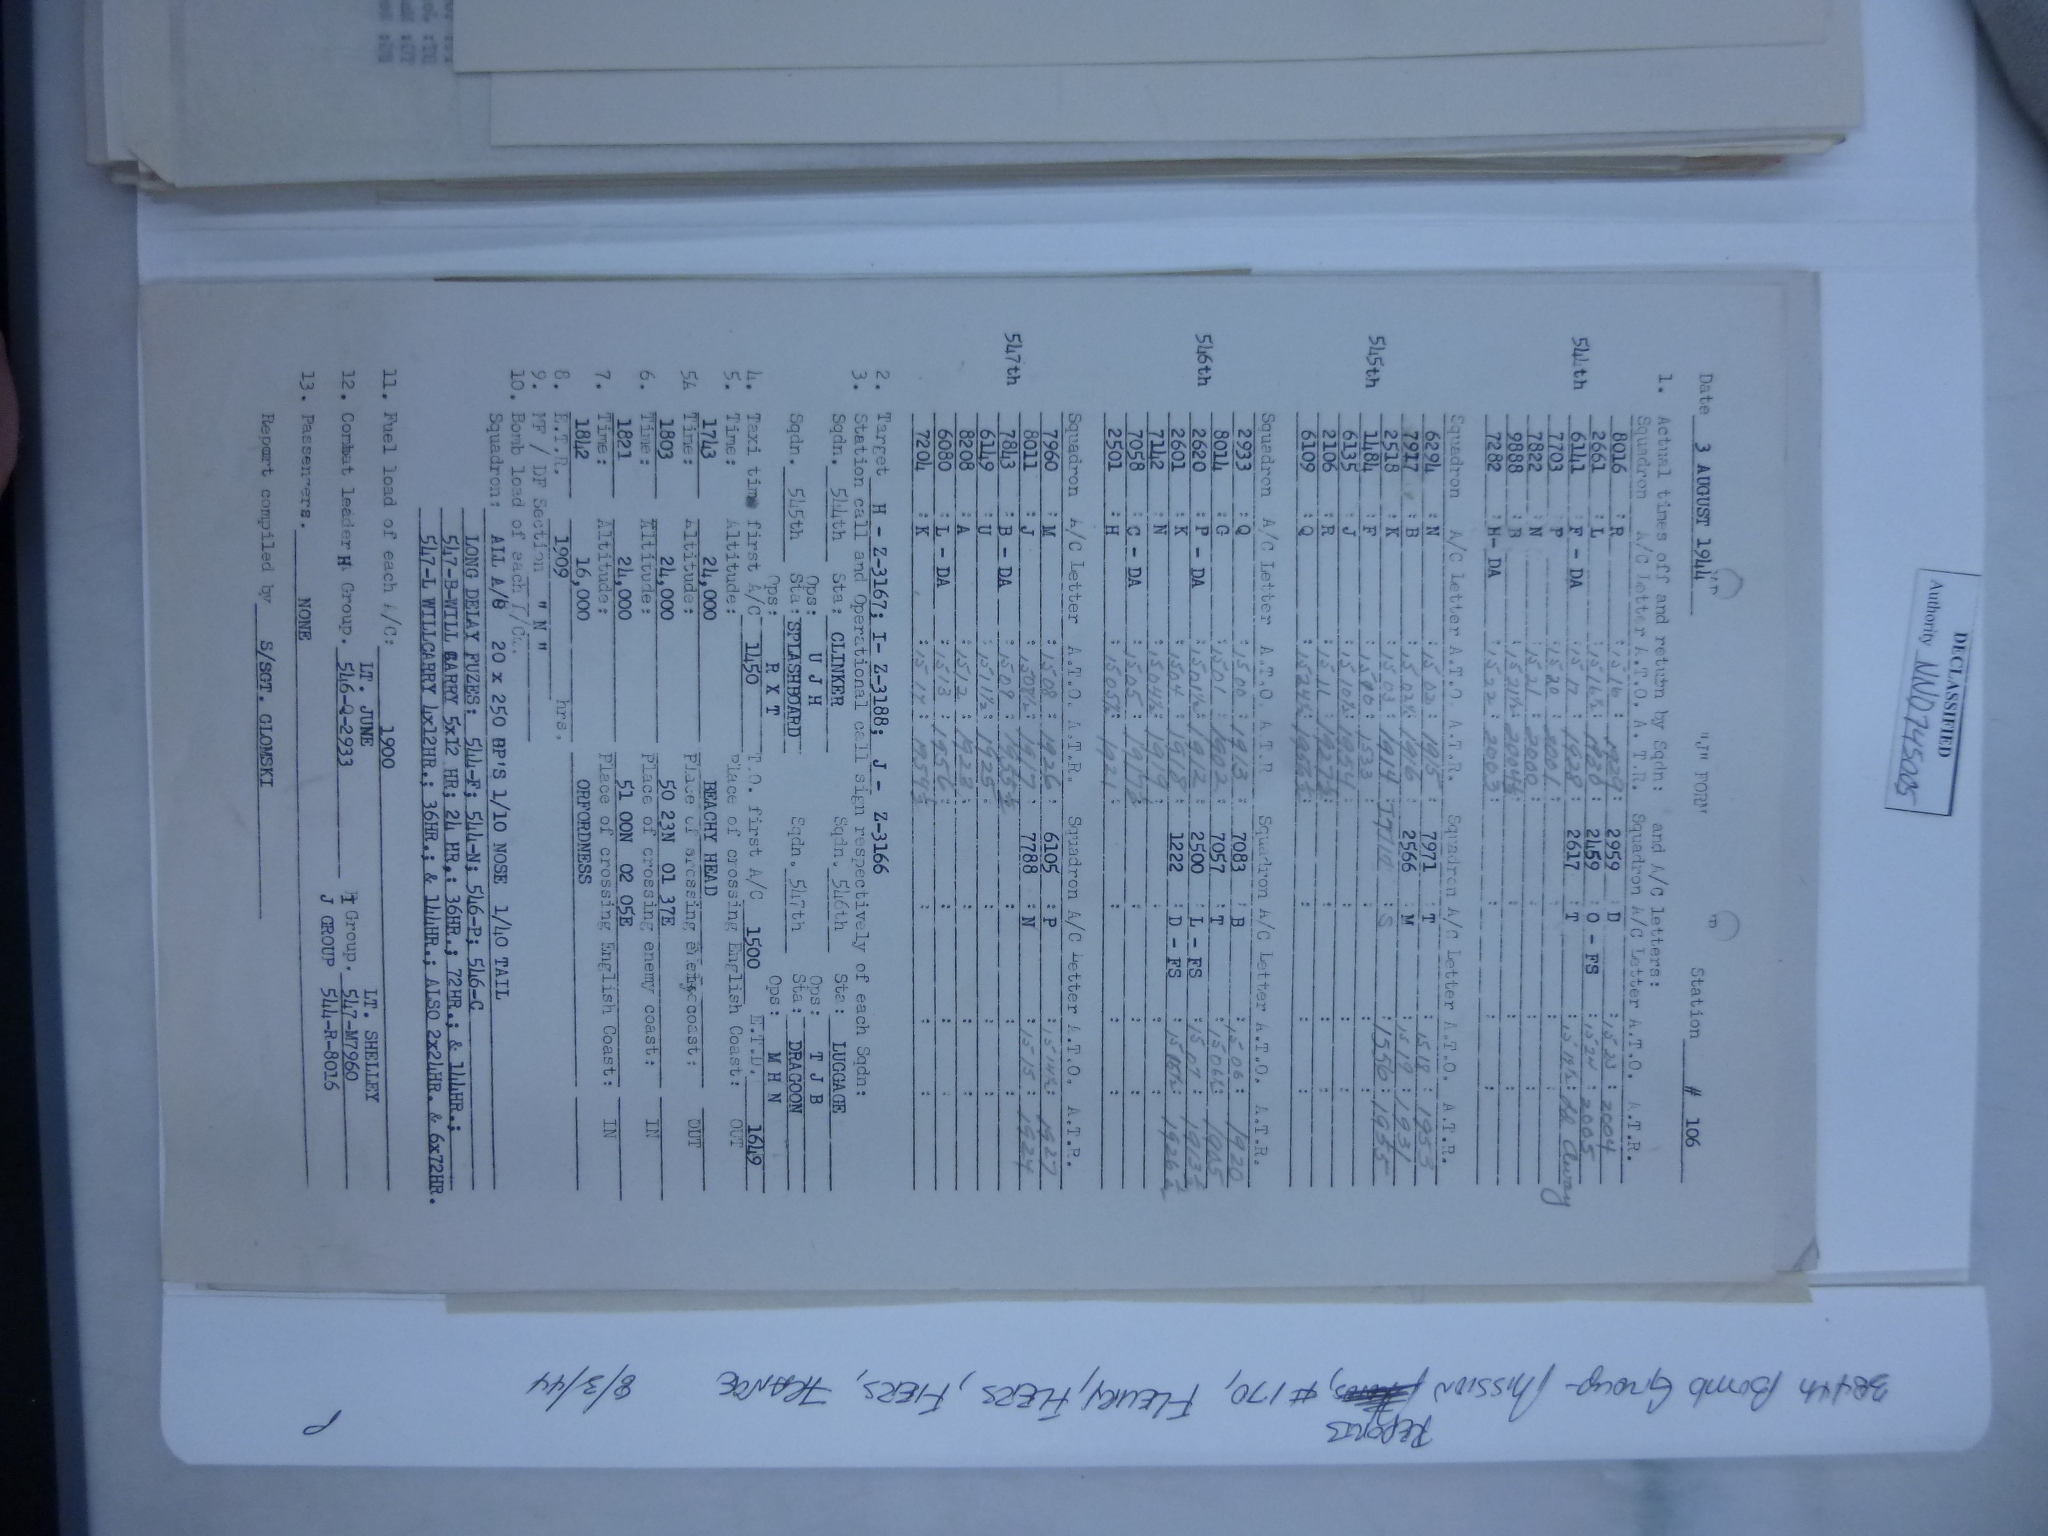 DECLASSIFIED
Authority NND745005
"J" FORM
Date 3 AUGUST 1944 Station # 106
1. Actual times off and return by Sqdn: and A/C letters:
Squadron A/C Letter A.T.O. A.T.R. Squadron A/C Letter A.T.O. A.T.R.
544th
8016 : R : 1516 : 1929 : 2959 : D : 1523 : 2004
2661 : L : 1516½ : 1930 : 2459 : O - FS : 1524 : 2005
6141 : F - DA : 1517 : 1928 : 2617 : T : 1519½ : All Away
7703 : P : 1520 : 2001 :
7822 : N : 1521 : 2000 :
9888 : B : 1521½ : 2004½ :
7282 : H- DA : 1522 : 2003 :
Squadron A/C Letter A.T.O. A.T.R. Squadron A/C Letter A.T.O. A.T.R.
545th
6294 : N : 1502 : 1915 : 7971 : T : 1518 : 1953
7917 : B : 1502½ : 1916 : 2566 : M : 1519 : 1931
2518 : K : 1503 : 1914 : : S : 1556 : 1955
1484 : F : 1533 :
6135 : J : 1510½ :
2106 : R : 1511 :
6109 : Q : 1524½ :
Squadron A/C Letter A.T.O. A.T.R. Squadron A/C Letter A.T.O. A.T.R.
546th
2933 : Q : 1500 : 1913 : 7083 : B : 1506 : 1920
8014 : G : 1501 : 1902 : 7057 : T : 1506½ : 1905
2620 : P - DA : 1501½ : 1912 : 2500 : L - FS : 1507 : 1913½
2601 : K : 1504 : 1918 : 1222 : D - FS : 1926½
7142 : N : 1504½ : 1919 :
7058 : C - DA : 1505 : 1917½
2501 : H : 1505½ : 1921 :
Squadron A/C Letter A.T.O. A.T.R. Squadron A/C Letter A.T.O. A.T.R.
547th
7960 : M : 1508 : 1926 : 6105 : P : 1514½ : 1927
8011 : J : 1508½ : 1917 : 7788 : N : 1515 : 1924
7843 : B - DA : 1509 :
6149 : U : 1511½ : 1925 :
8208 : A : 1512 : 1923 :
6080 : L - DA : 1513 : 1956 :
7204 : K : 1514 :
2. Target H - Z-3167; I- Z-3188; J - Z-3166
3. Station call and Operational call sign respectively of each Sqdn:
Sqdn. 544th Sta: CLINKER Sqdn. 546th Sta: LUGGAGE
Ops: U J H Ops: T J B
Sqdn. 545th Sta: SPLASHBOARD Sqdn. 547th Sta: DRAGOON
Ops: R X T Ops: M H N
4. Taxi time first A/C 1450 T.O. first A/C 1500 E.T.D. 1649
5. Time: Altitude: Place of crossing English Coast: OUT
1743 24,000 BEACHY HEAD
5A Time: Altitude: Place of crossing enemy coast: OUT
1803 24,000 50 23N 01 37E
6. Time: Altitude: Place of crossing enemy coast: IN
1821 24,000 51 00N 02 05E
7. Time: Altitude: Place of crossing English Coast: IN
1842 16,000 ORFORDNESS
8. E.T.R. 1909 hrs.
9. MF / DF Section "N"
10. Bomb load of each A/C.
Squadron: ALL A/C 20 x 250 GP'S 1/10 NOSE 1/40 TAIL
LONG DELAY FUZES: 544-F; 544-N; 546-P; 546-C
547-B-WILL CARRY 5x12 HR; 24 HR.; 36HR.; 72HR.; & 144HR.;
547-L WILLCARRY 4x12HR.; 36HR.; & 144HR.; ALSO 2x24HR. & 6x72HR.
11. Fuel load of each A/C: 1900
LT. JUNE LT. SHELLEY
12. Combat leader H Group. 546-Q-2933 I Group. 547-M7960
J GROUP 544-R-8016
13. Passengers. NONE
Report compiled by S/SGT. GLOMSKI
384th Bomb Group Mission Reports, #170, Fleury, FLERS, FIERS, FRANCE 8/3/44
P